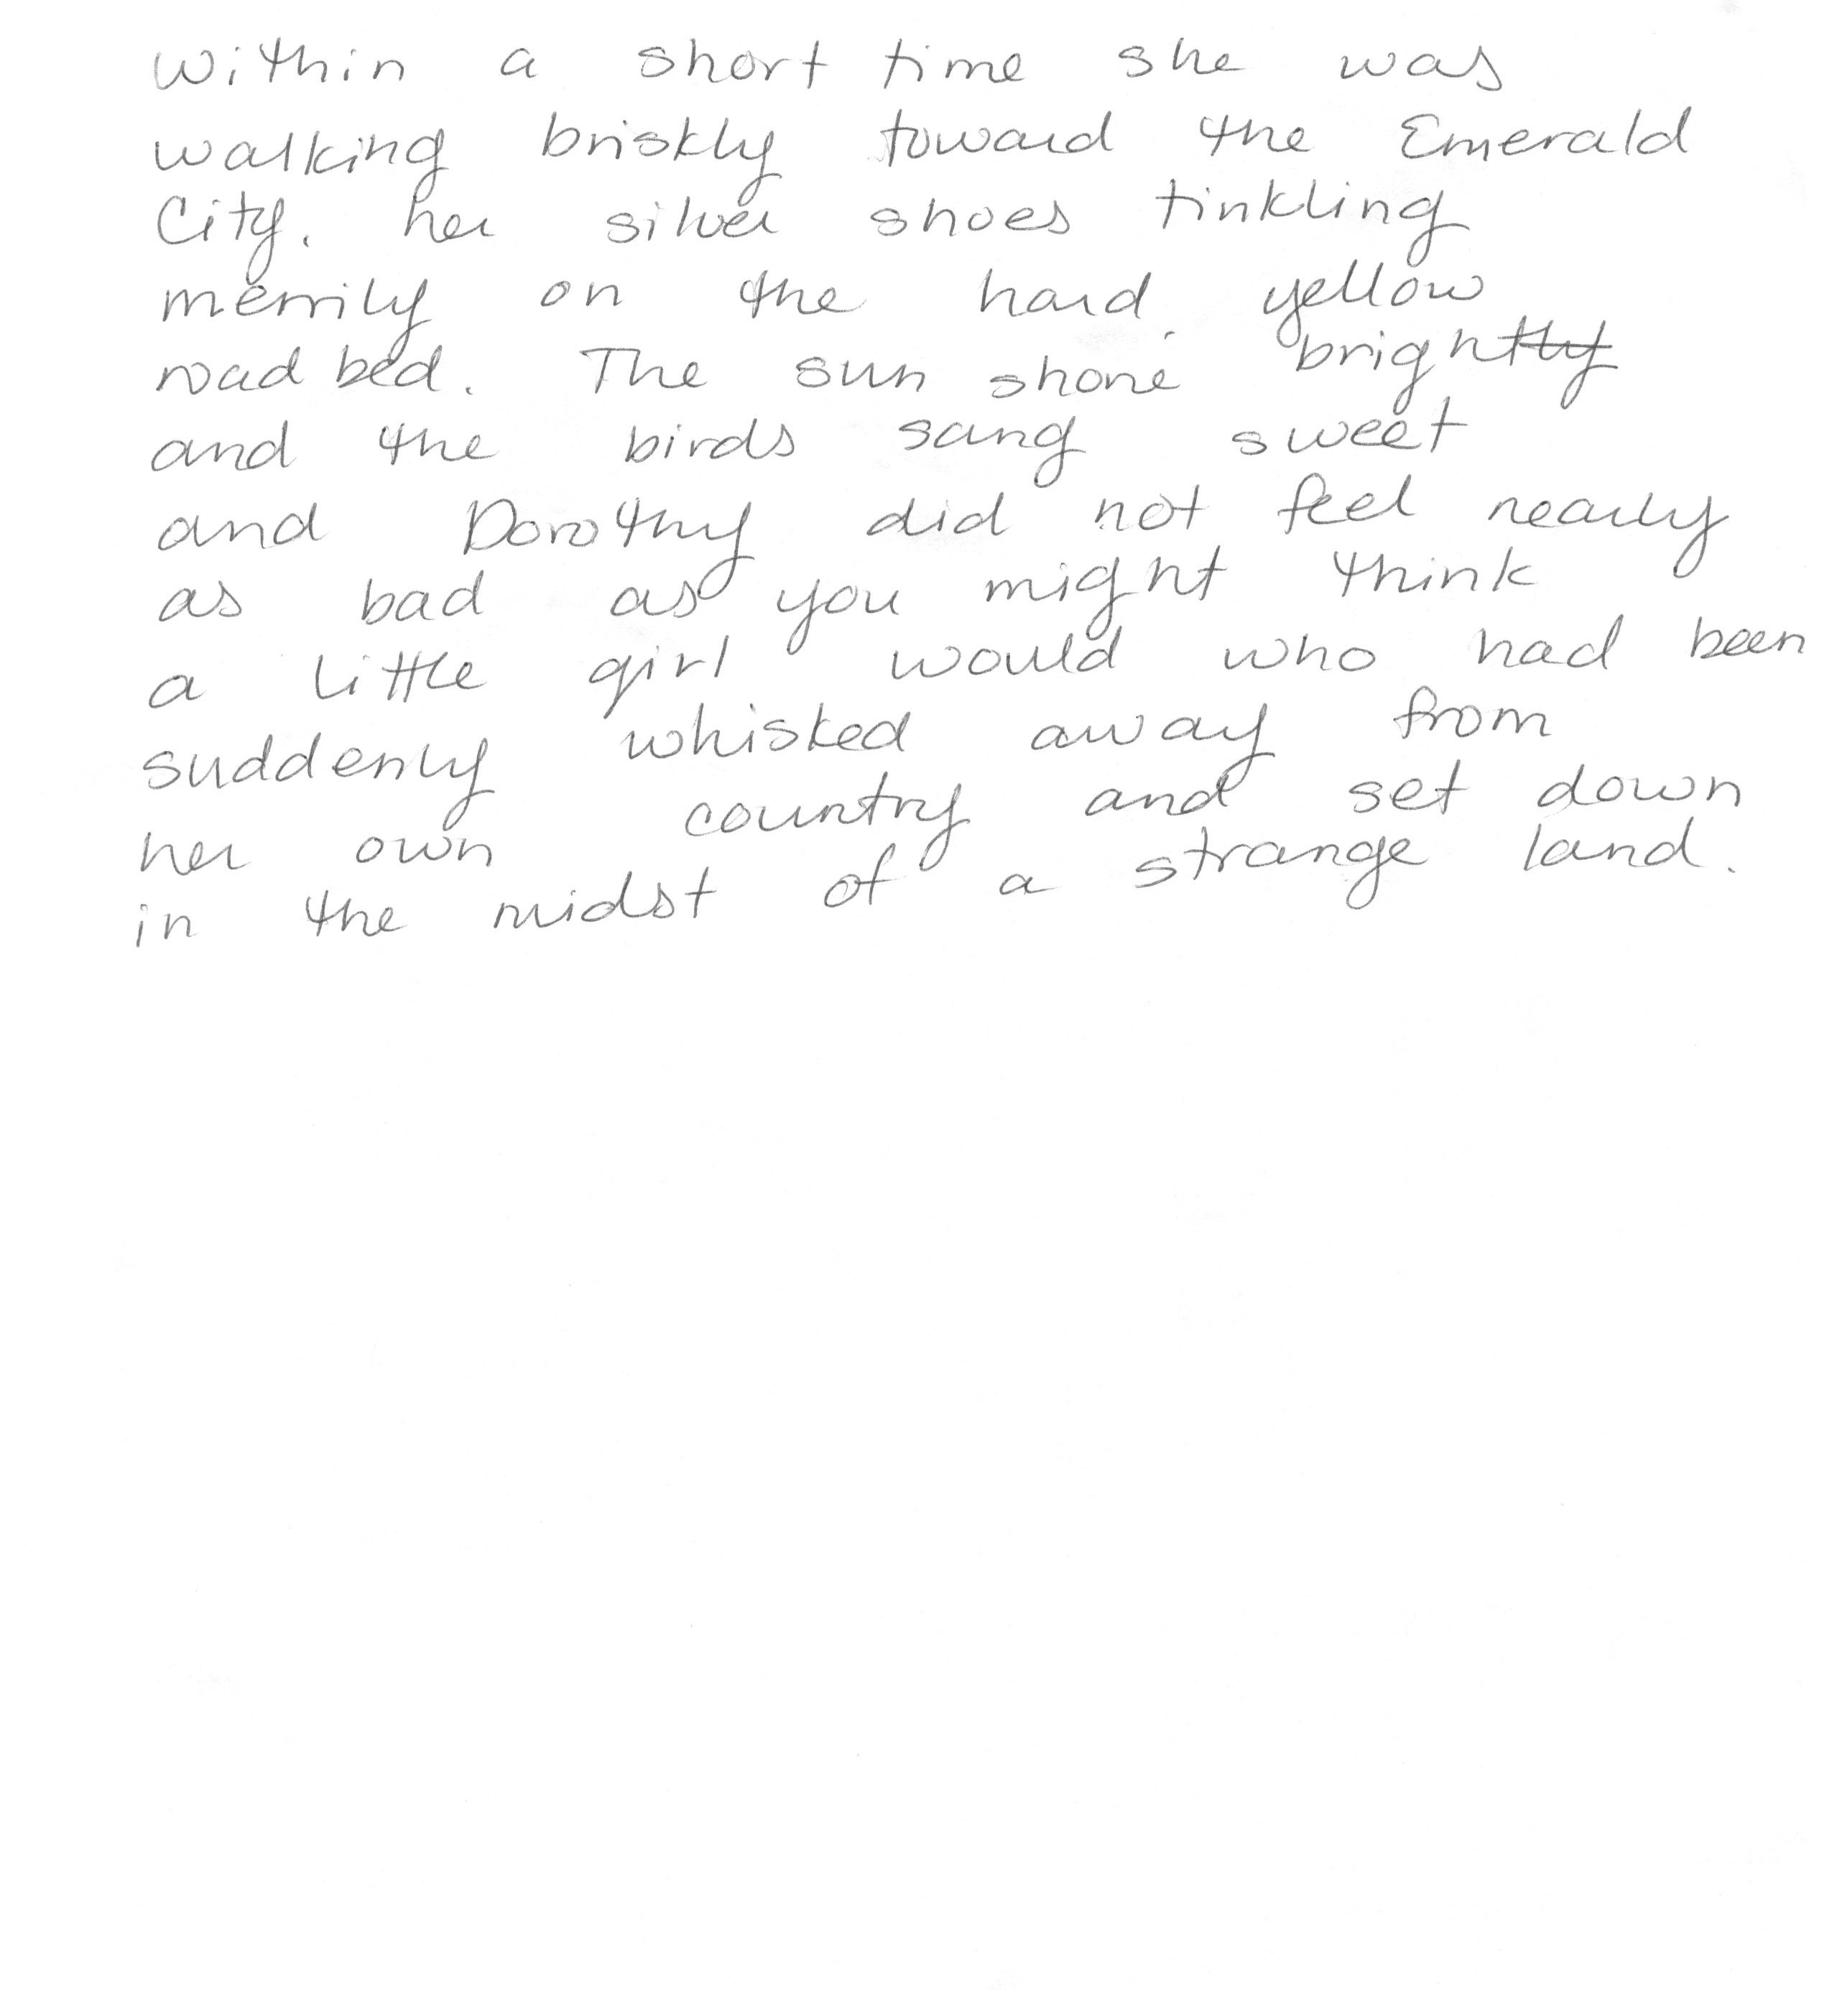 Within a short time she was
walking briskly toward the Emerald
City, her silver shoes tinkling
merrily on the hard, yellow
road bed. The sun shone bright
and the birds sang sweet
and Dorothy did not feel nearly
as bad as you might think
a little girl would who had been
suddenly whisked away from
her own country and set down
in the midst of a strange land.